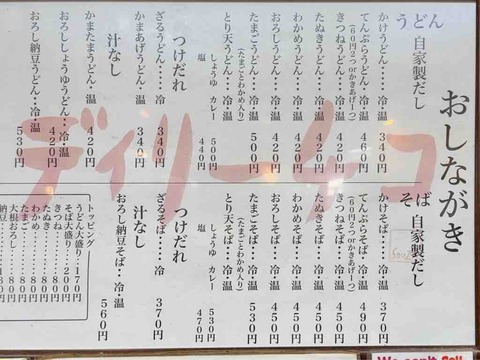 おしながき
うどん 自家製だし
かけうどん‥冷・温 340円
てんぷらうどん・冷・温 460円
(60円2つorかきあげ1つ)
きつねうどん・冷・温 420円
たぬきうどん・冷・温 420円
わかめうどん・冷・温 420円
おろしうどん・冷・温 420円
たまごうどん・冷・温 500円
(たまごとわかめ入り)
とり天うどん・冷・温
しょうゆ カレー 500円
塩 440円
つけだれ
ざるうどん‥‥冷 340円
かまあげうどん・温 340円
汁なし
かまたまうどん・温 420円
おろししょうゆうどん・冷・温 420円
おろし納豆うどん・・冷・温 530円
そば 自家製だし
かけそば‥冷・温 370円
てんぷらそば・冷・温 490円
(60円2つorかきあげ1つ)
きつねそば・冷・温 450円
たぬきそば・冷・温 450円
わかめそば・冷・温 450円
おろしそば・冷・温 450円
たまごそば・冷・温 530円
(たまごとわかめ入り)
とり天そば・冷・温
しょうゆ カレー 530円
塩 470円
つけだれ
ざるそば‥‥冷 370円
汁なし
おろし納豆そば・・冷・温 560円
トッピング
うどん大盛り・170円
そば大盛り・・200円
たぬき‥‥80円
きつね‥‥80円
わかめ‥‥80円
たまご‥‥80円
大根おろし・80円
納豆
デイリー
We can't